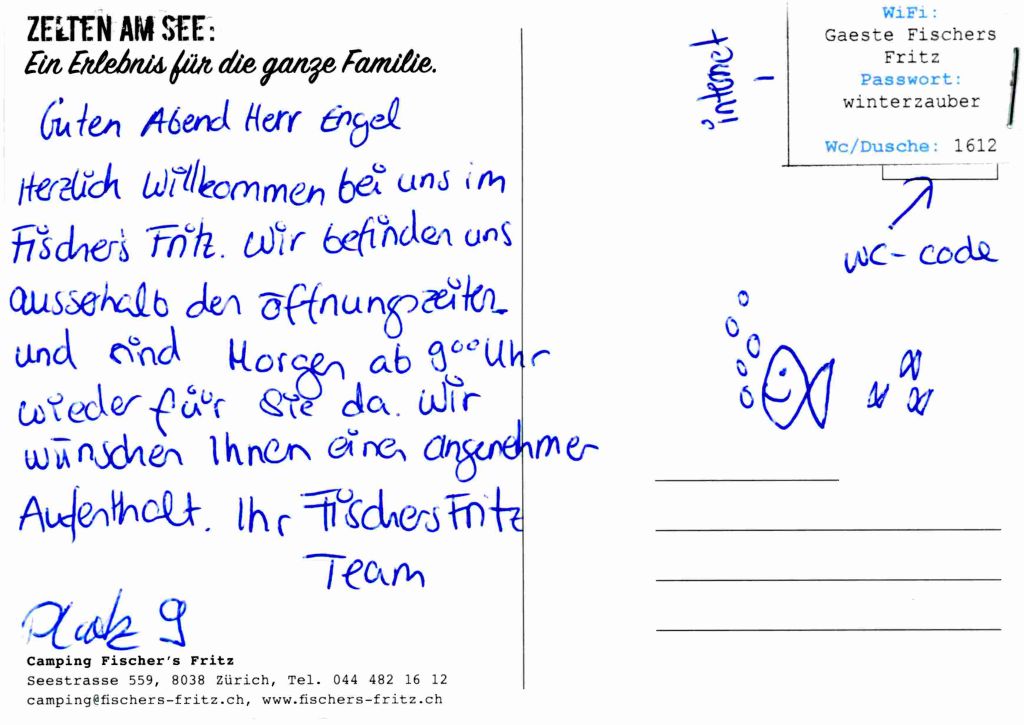 ZELTEN AM SEE:
Ein Erlebnis für die ganze Familie.
Guten Abend Herr Engel
Herzlich Willkommen bei uns im
Fischer's Fritz. Wir befinden uns
ausserhalb den öffnungszeiten
und sind Morgen ab 9⁰⁰ Uhr
wieder für Sie da. Wir
wünschen Ihnen einen angenehmen
Aufenthalt. Ihr Fischers Fritz
Team
Platz 9
Camping Fischer's Fritz
Seestrasse 559, 8038 Zürich, Tel. 044 482 16 12
camping@fischers-fritz.ch, www.fischers-fritz.ch
internet
WiFi:
Gaeste Fischers
Fritz
Passwort:
winterzauber
Wc/Dusche: 1612
WC-code